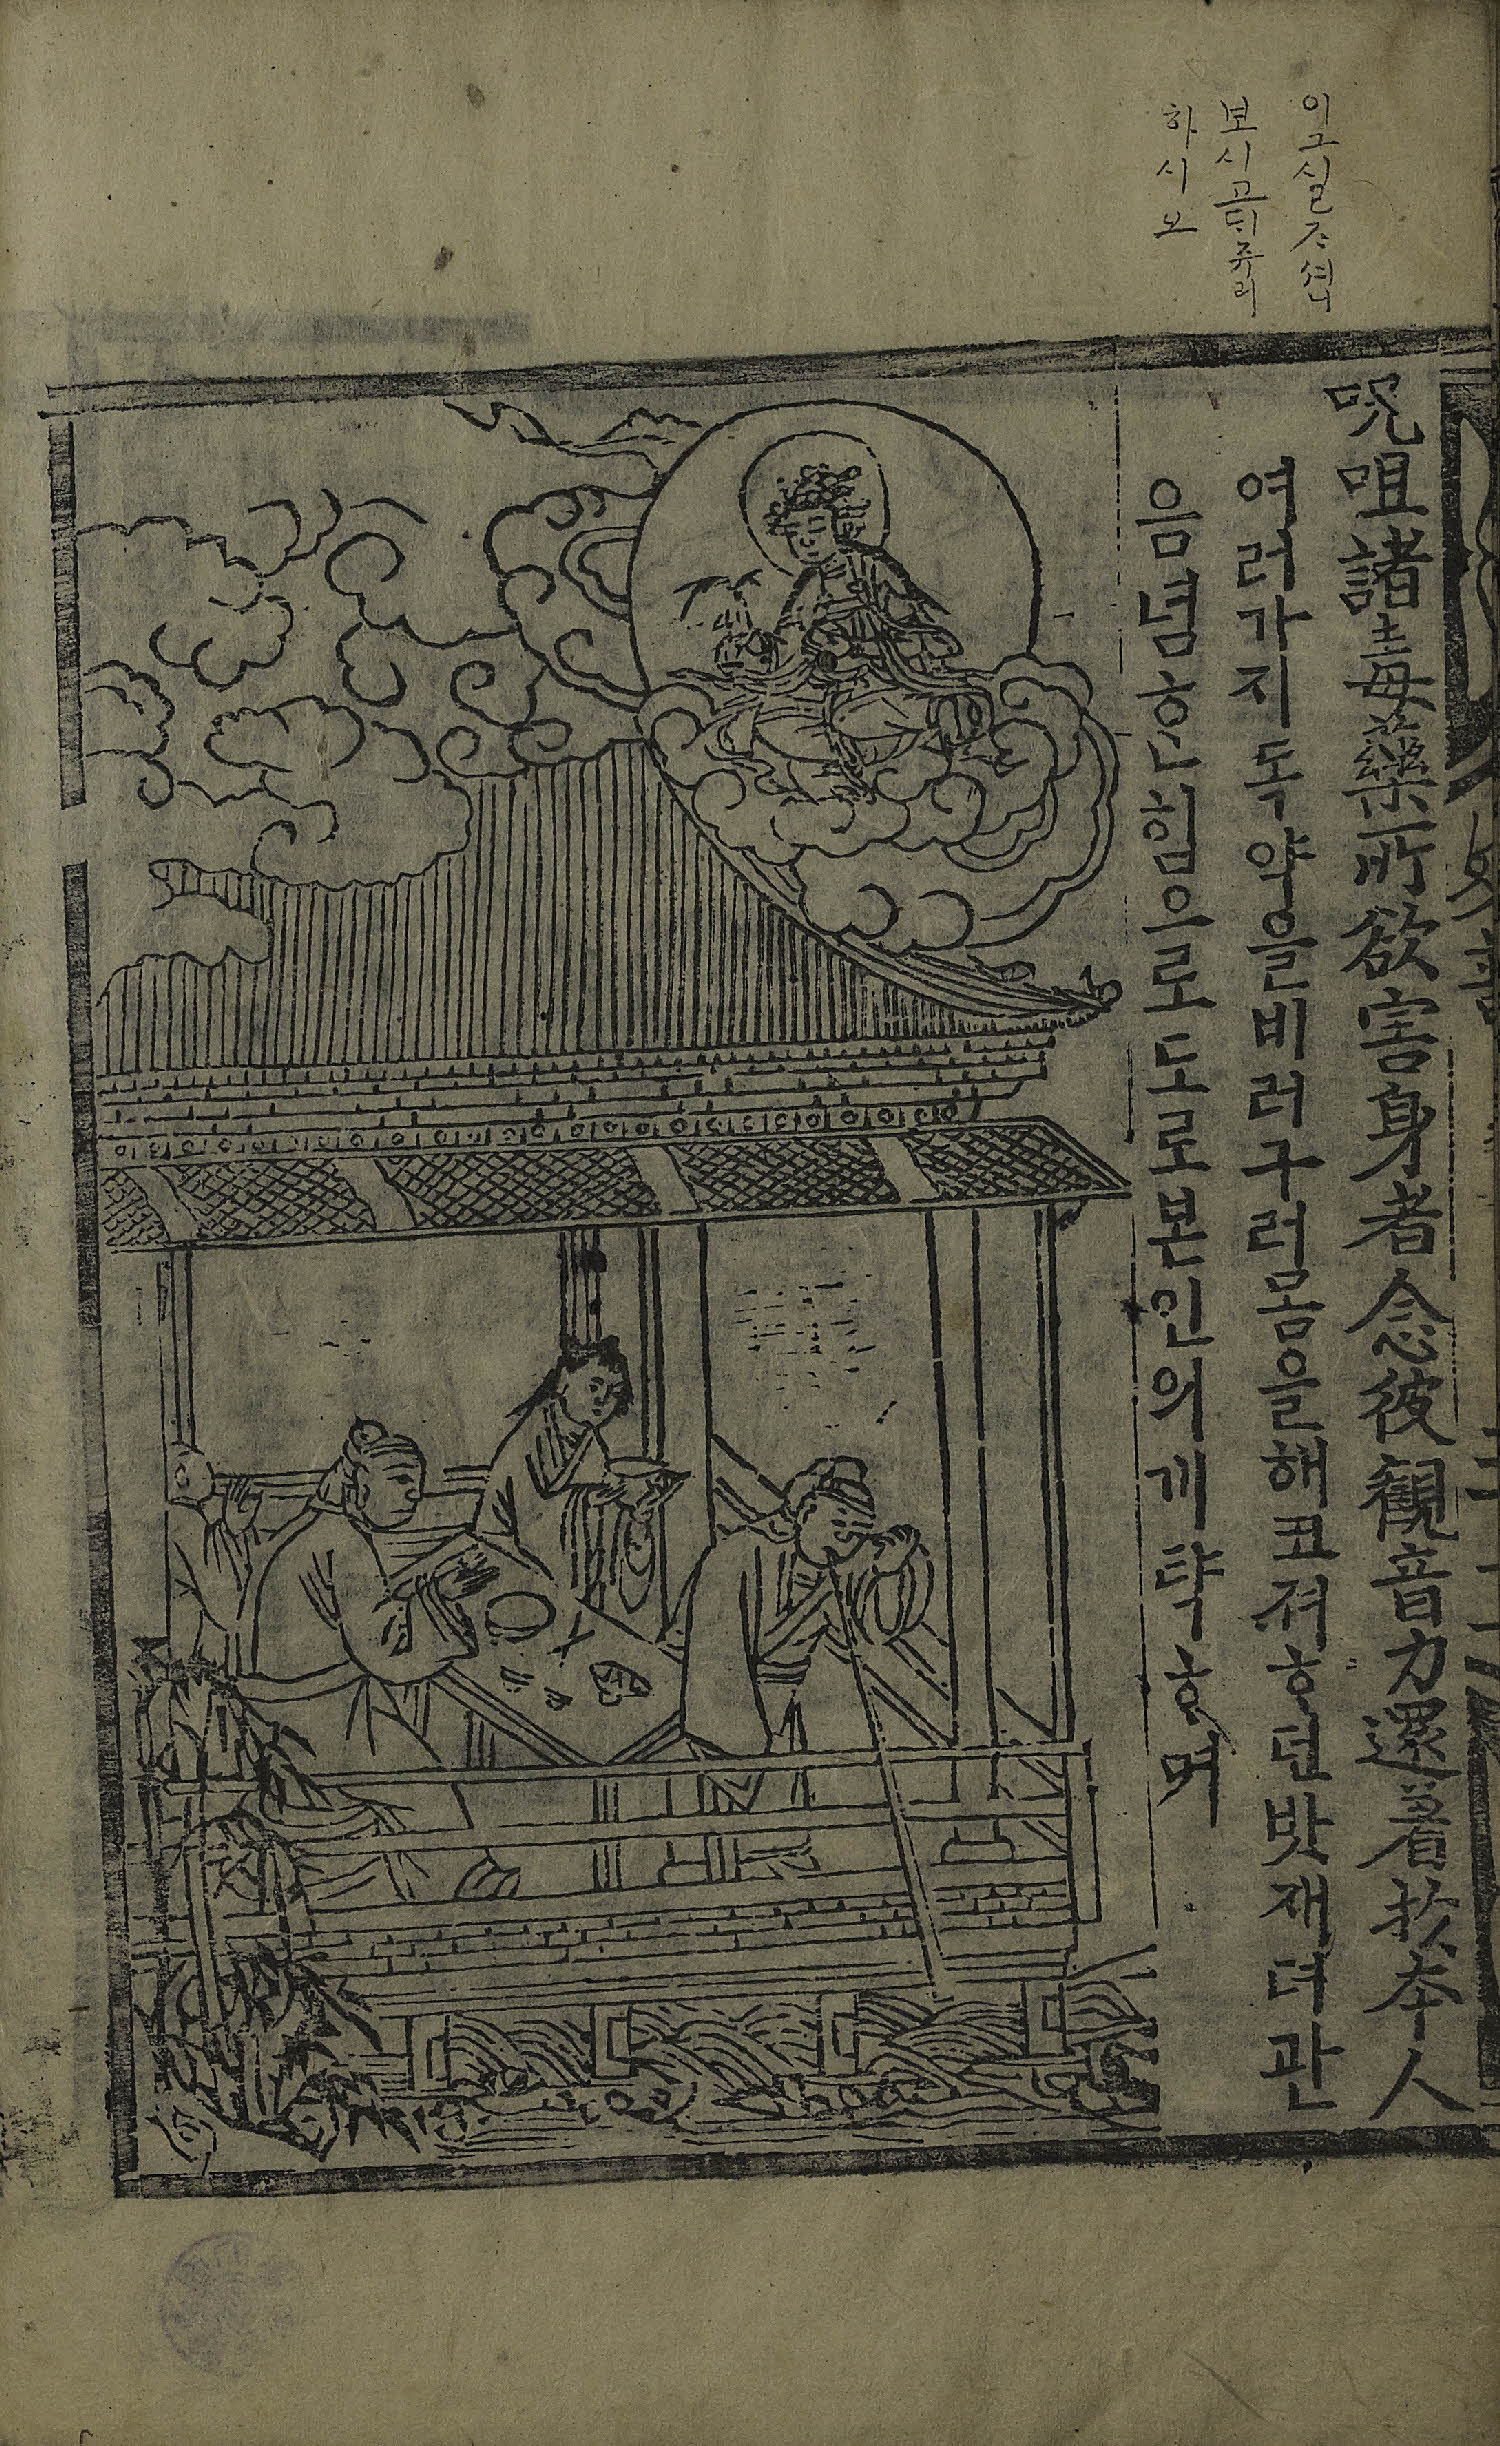 이그실ᄌᆞ셰니
보시고뒤쥬리
하시ᄋᆞ
呪咀諸毒藥所欲害身者念彼觀音力還着扵本人
여러가지독약을비러구러몸을해코져ᄒᆞ던밧재뎌관
음념ᄒᆞᆫ힘으로도로본인의게탁ᄒᆞ며